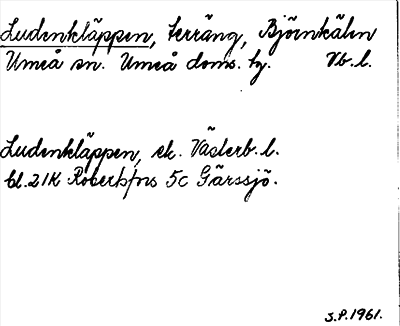 Ludenkläppen, terräng, Björnkälen
Umeå sn. Umeå doms. tg. Vb. l.
Ludenkläppen, ek. Västerb. l.
bl. 21K Robertsfors 5c Gärssjö.
S.P. 1961.